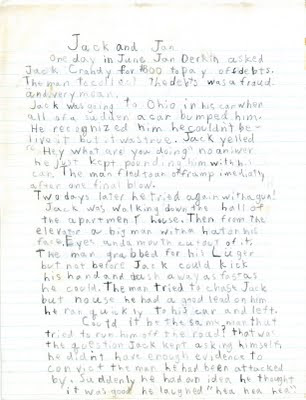 Jack and Jan
One day in June Jan Derkin asked
Jack Crahdy for $600 to pay of debts.
The man to collect the debts was a fraud
and very mean.
Jack was going to Ohio in his car when
all of a sudden a car bumped him.
He recognized him he couldn't be-
live it but it was true. Jack yelled
"Hey what are you doing" no answer
he just kept pounding him with hi
car. The man fled to an off ramp imediatly
after one final blow.
Two days later he tried again with a gun!
Jack was walking down the hall of
the apartment house. Then from the
elevator a big man with a hat on his
face. Eyes and a mouth cut out of it.
The man grabbed for his Luger
but not before Jack could kick
his hand and dash away as fast as
he could. The man tried to chase Jack
but no use he had a good lead on him
he ran quickly to his car and left.
Could it be the same man that
tried to run him off the road? that was
the question Jack kept asking himself,
he didn't have enough evidence to
convict the man he had been attacked
by. Suddenly he had an idea he thought
it was good he laughed "hea hea hea".